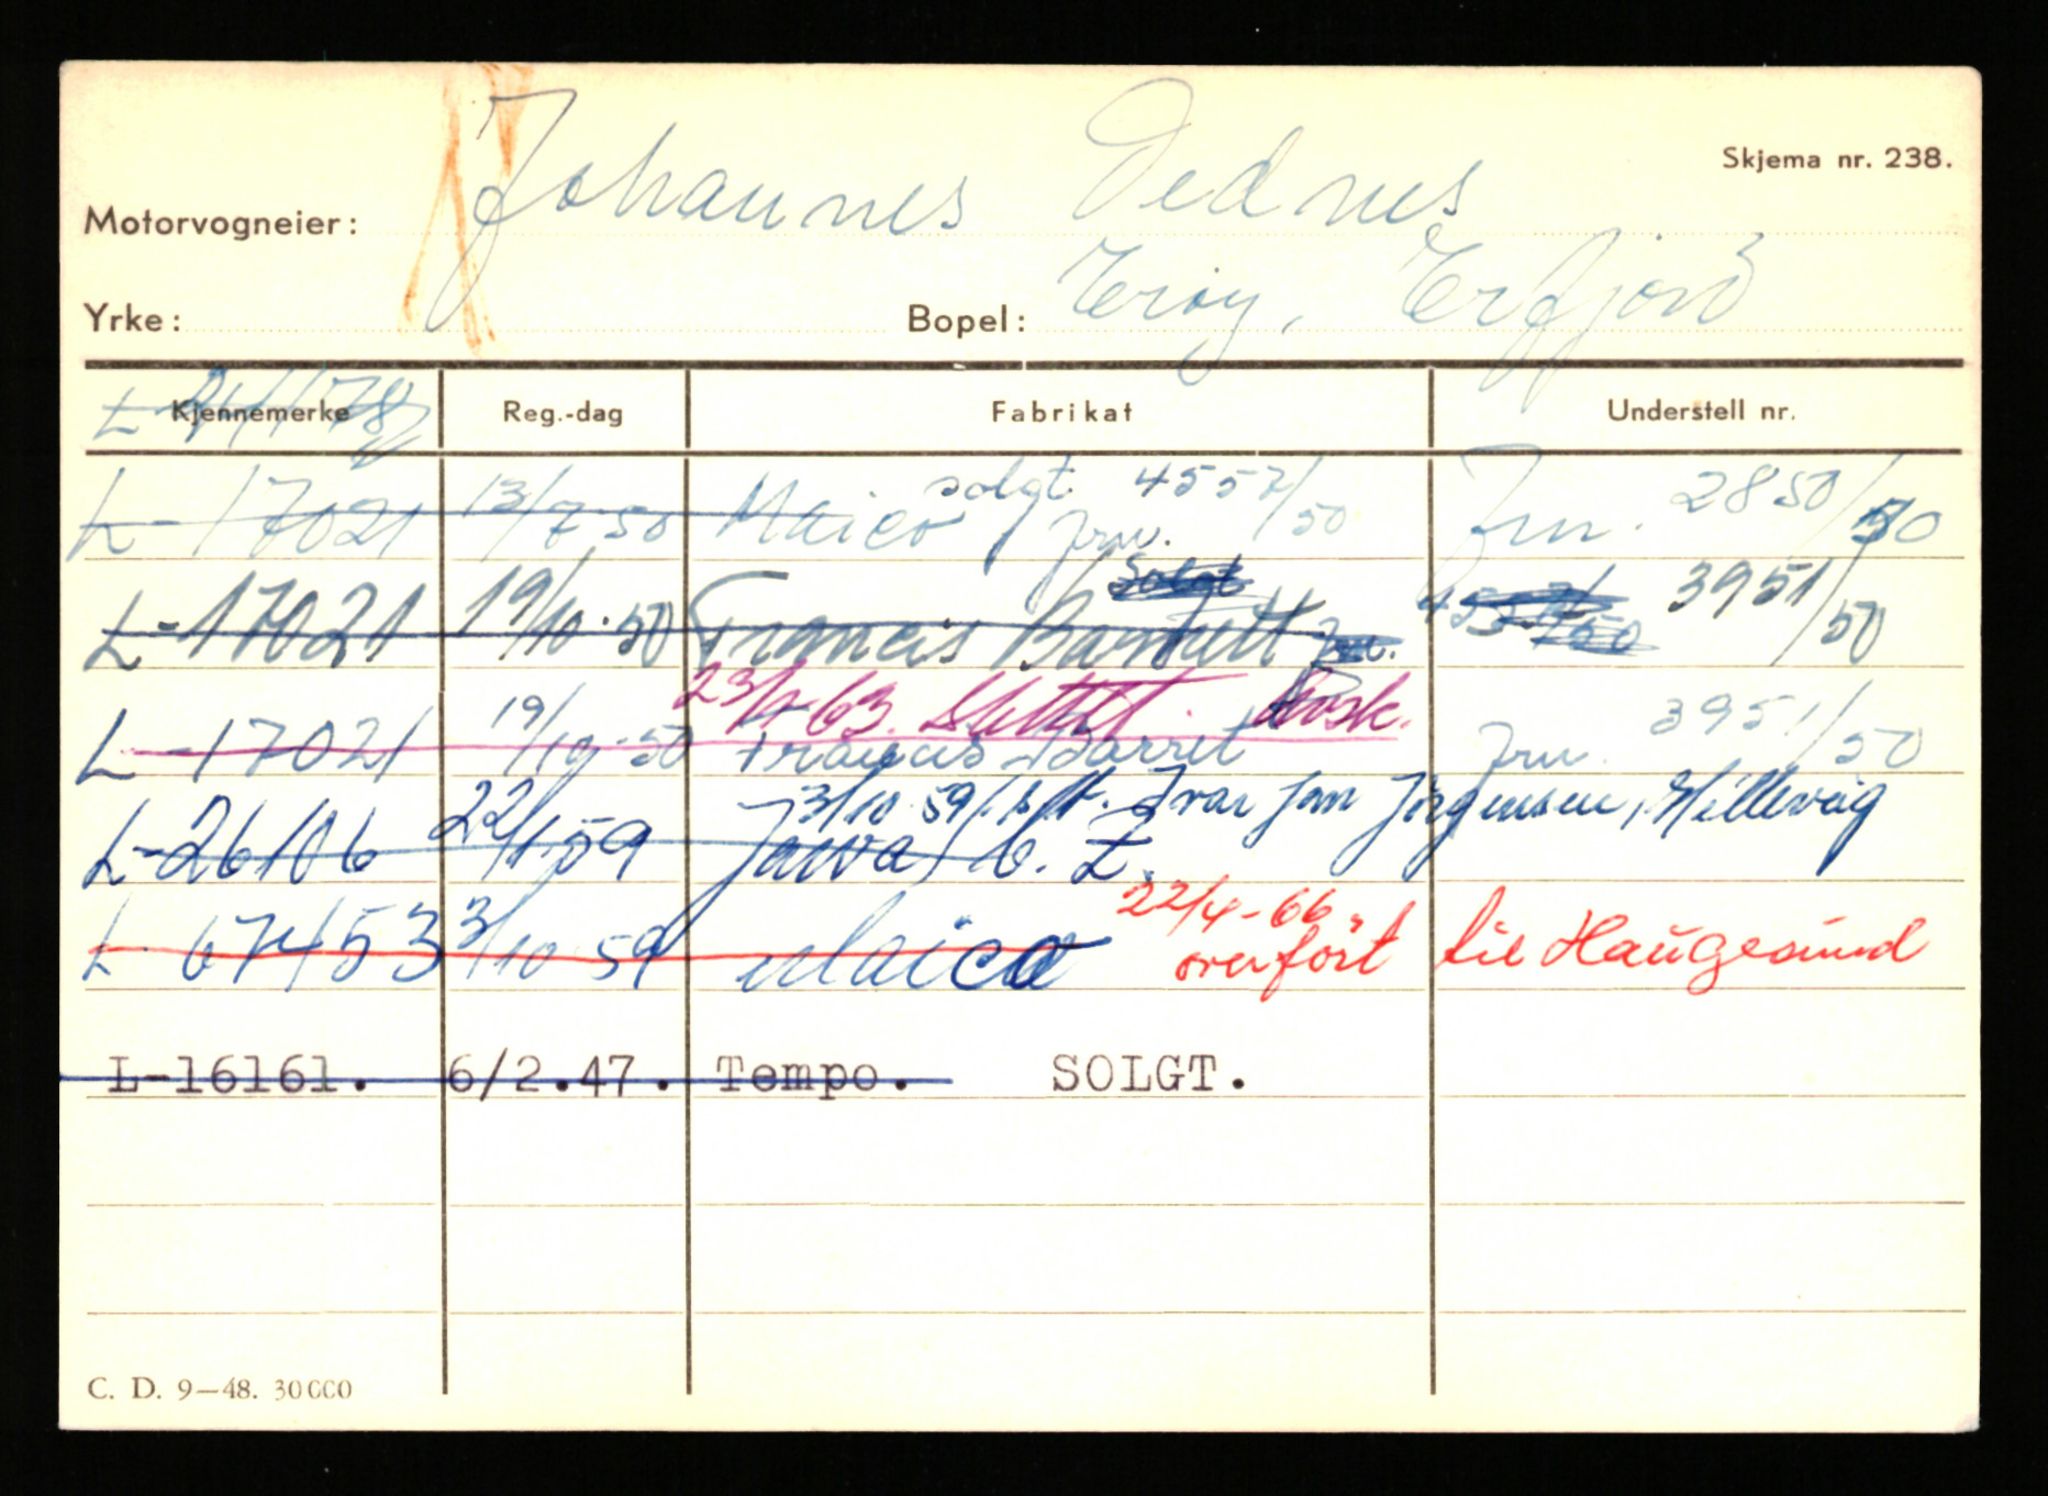 Johannes Dednes
Skjema nr. 238.
Motorvogneier:
Yrke: Bopel: Erøy, Erfjord
Kjennemerke Reg.-dag Fabrikat Understell nr.
L-17021 13/7 50 Maico solgt 4557/50 Jrn. Jrn. 2850/50
L-17021 19/10.50 Francis Barnett solgt 3951/50
23/7 63. Slettet.
L-17021 19/10-50 Francis Barret Jrn. 3951/50
3/10 59 Ivar Jon Jörgensen, Hillevåg
L-26106 22/1 59 Jawa C.Z.
22/4-66
L 67453 3/10 59 Maico overfört til Haugesund
L-16161. 6/2.47. Tempo. SOLGT.
C. D. 9—48. 30000